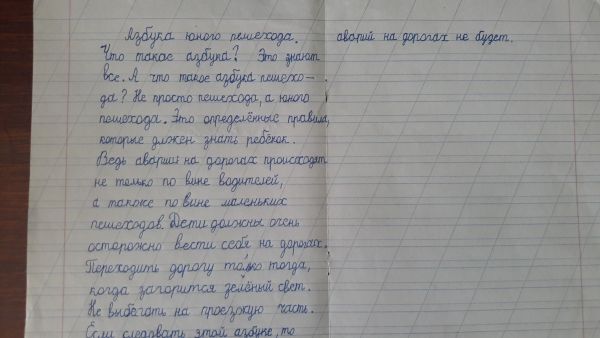 Азбука юного пешехода.
Что такое азбука? Это знают
все. А что такое азбука пешехо-
да? Не просто пешехода, а юного
пешехода. Это определённые правила,
которые должен знать ребёнок.
Ведь аварии на дорогах происходят
не только по вине водителей,
а также по вине маленьких
пешеходов. Дети должны очень
осторожно вести себя на дорогах.
Переходить дорогу только тогда,
когда загорится зелёный свет.
Не выбегать на проезжую часть.
Если следовать этой азбуке, то
аварий на дорогах не будет.